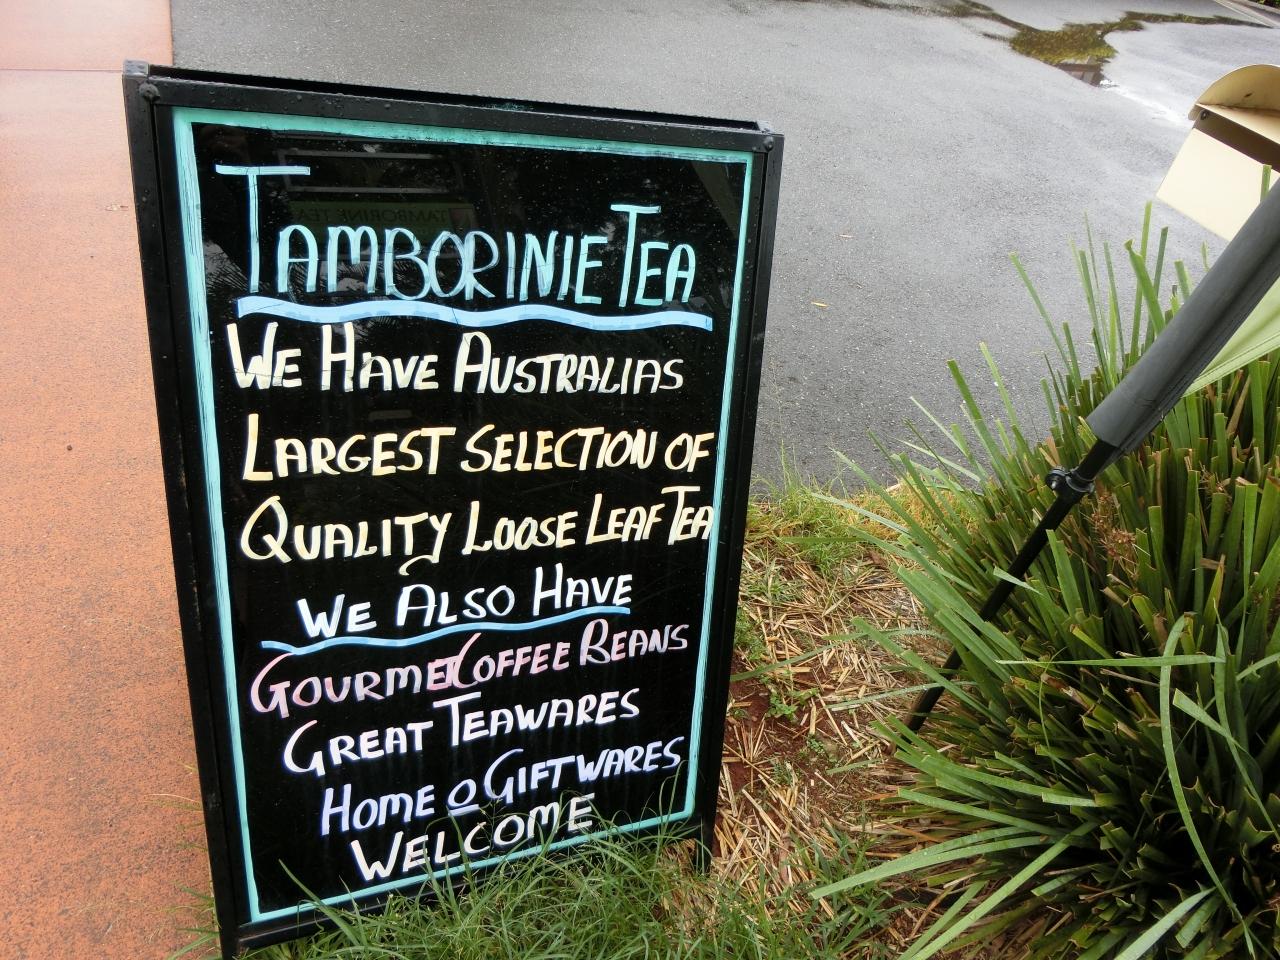 TAMBORINIE TEA
WE HAVE AUSTRALIAS
LARGEST SELECTION OF
QUALITY LOOSE LEAF TEA
WE ALSO HAVE
GOURMET COFFEE BEANS
GREAT TEAWARES
HOME o GIFTWARES
WELCOME
TAMBORINE TEA